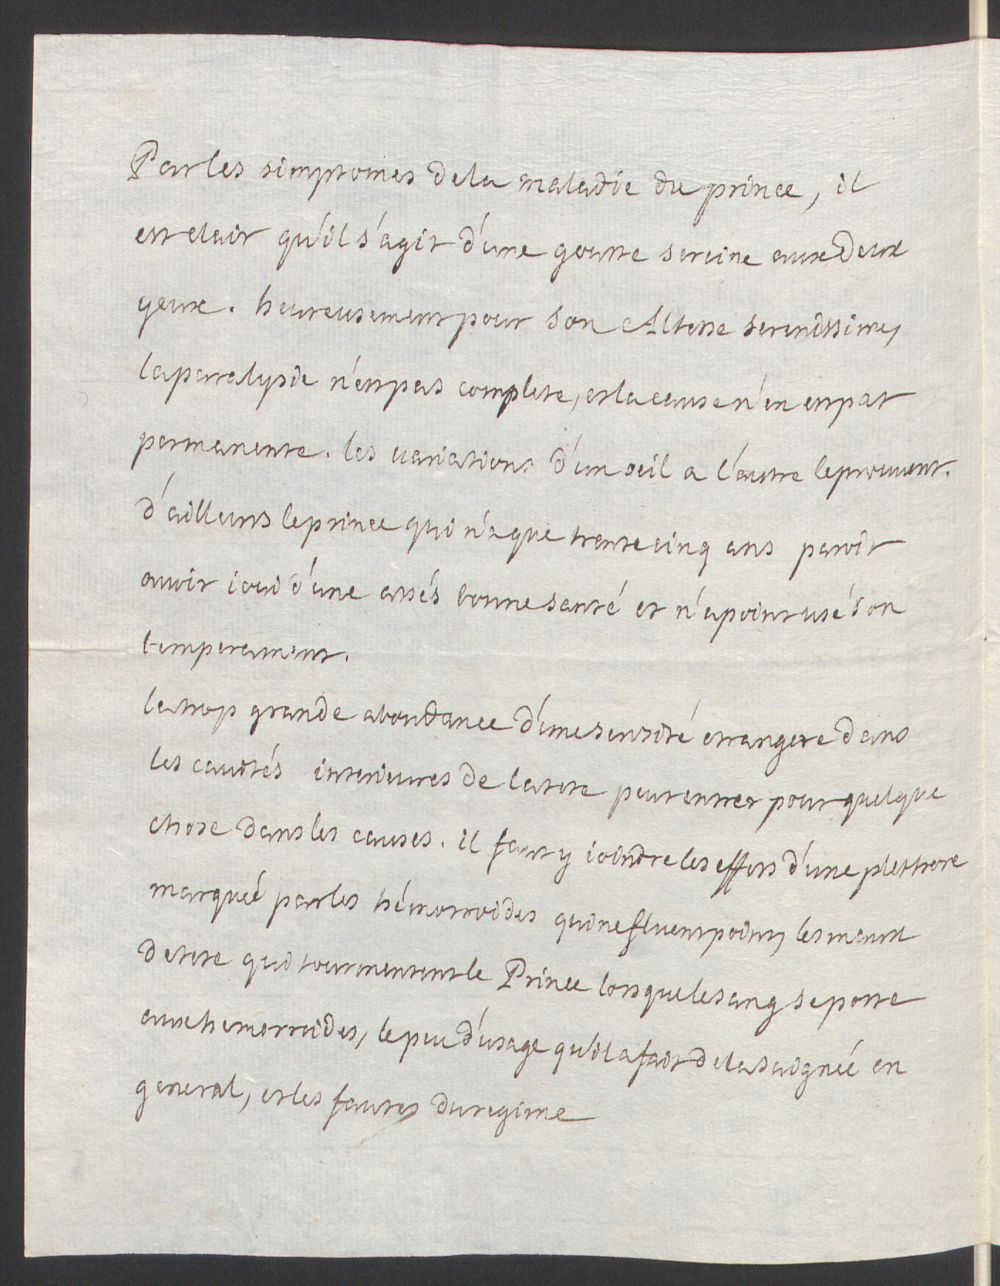 Par les simptomes de la maladie du prince, il
est clair qu'il s'agit d'une goutte sereine aux deux
yeux. heureusement pour son Altesse serenissime,
la paralysie n'est pas complete, et la cause n'en est pas
permanente. les variations d'un oeil a l'autre le prouvent.
d'ailleurs le prince qui n'a que trente cinq ans paroît
avoir ioui d'une assés bonne santé et n'a point usé son
temperament.
la trop grande abondance d'une serosité etrangere dans
les cavités interieures de la tete peut entrer pour quelque
chose dans les causes. il faut y ioindre les effets d'une plethore
marqueé par les hémorroides qui ne fluent point, les maux
de tete qui tourmentent le Prince lorsque le sang se porte
aux hemorroides, le peu d'usage qu'il a fait de la saigneé en
general, et les fautes du regime